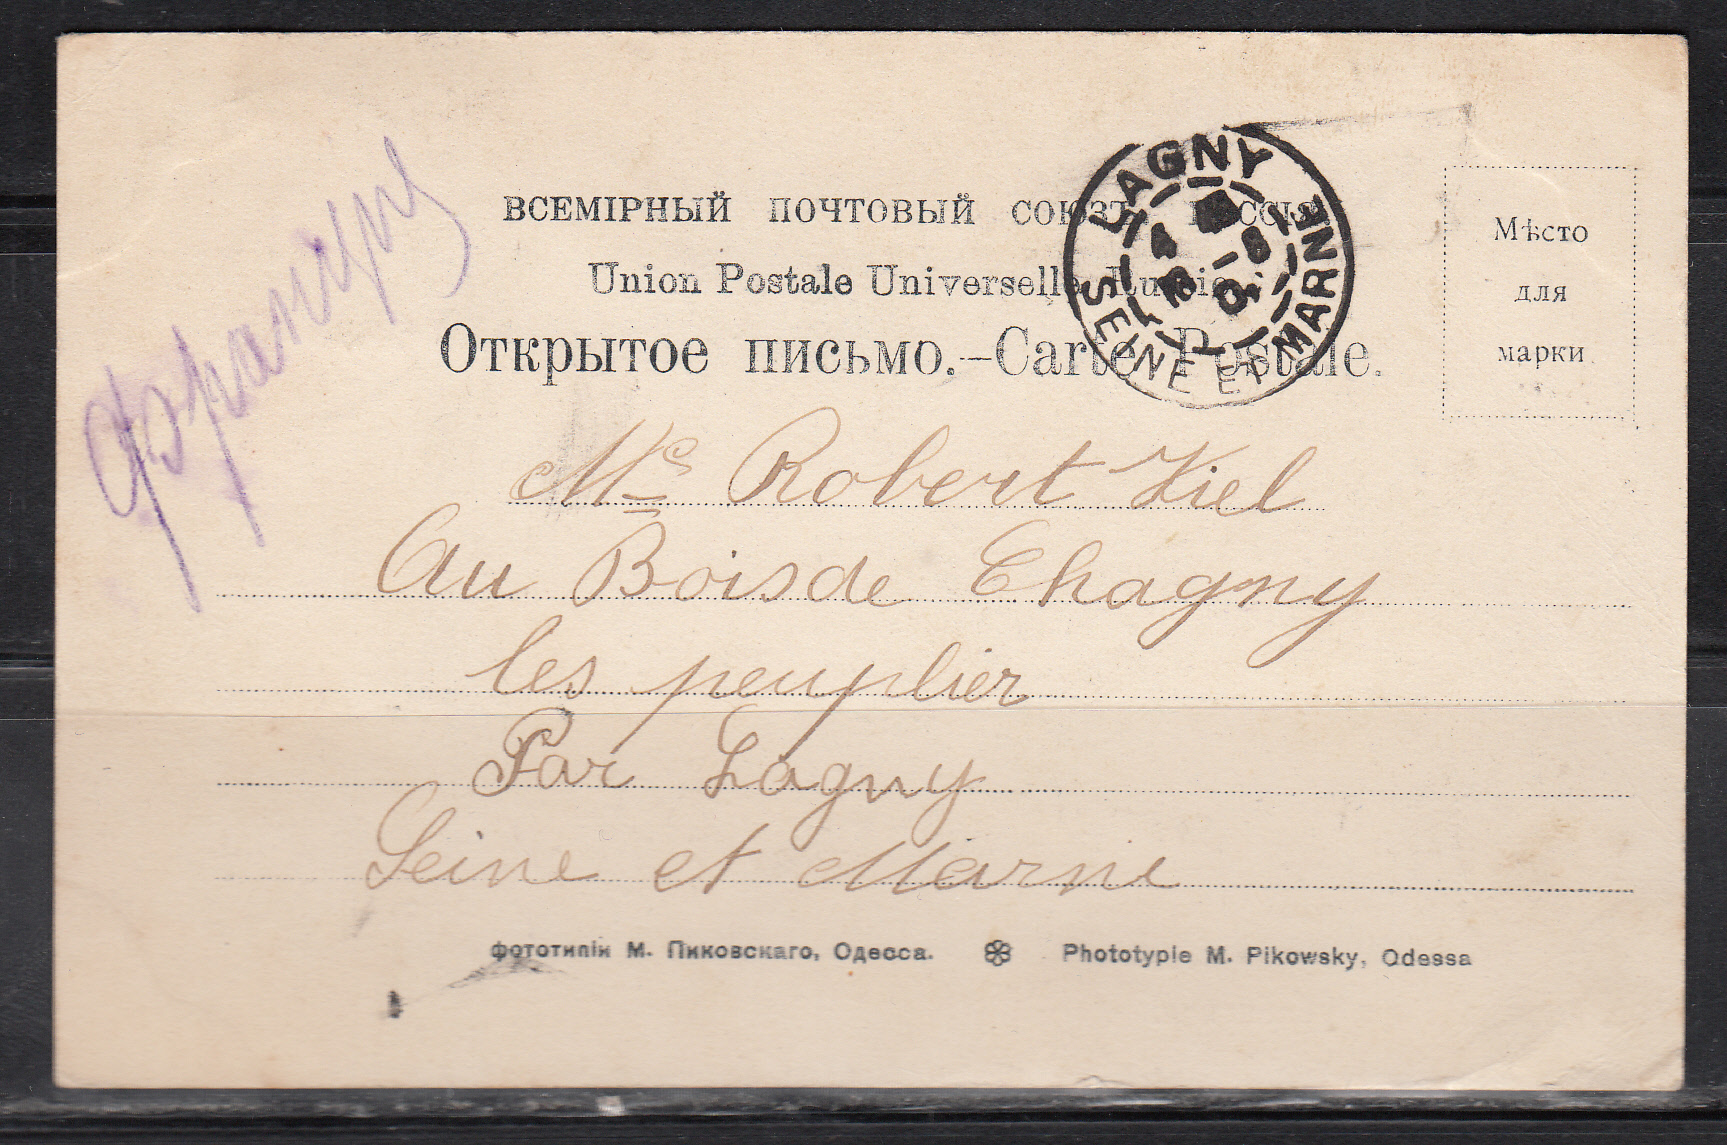 ВСЕМІРНЫЙ ПОЧТОВЫЙ СОЮЗЪ. РОССІЯ
Union Postale Universelle. Russie
Открытое письмо.—Carte Postale.
Мѣсто
для
марки
LAGNY
SEINE ET MARNE
Mr Robert Kiel
Au Bois de Chagny
les peuplier
Par Lagny
Seine et Marne
фототипія М. Пиковскаго, Одесса. Phototypie M. Pikowsky, Odessa